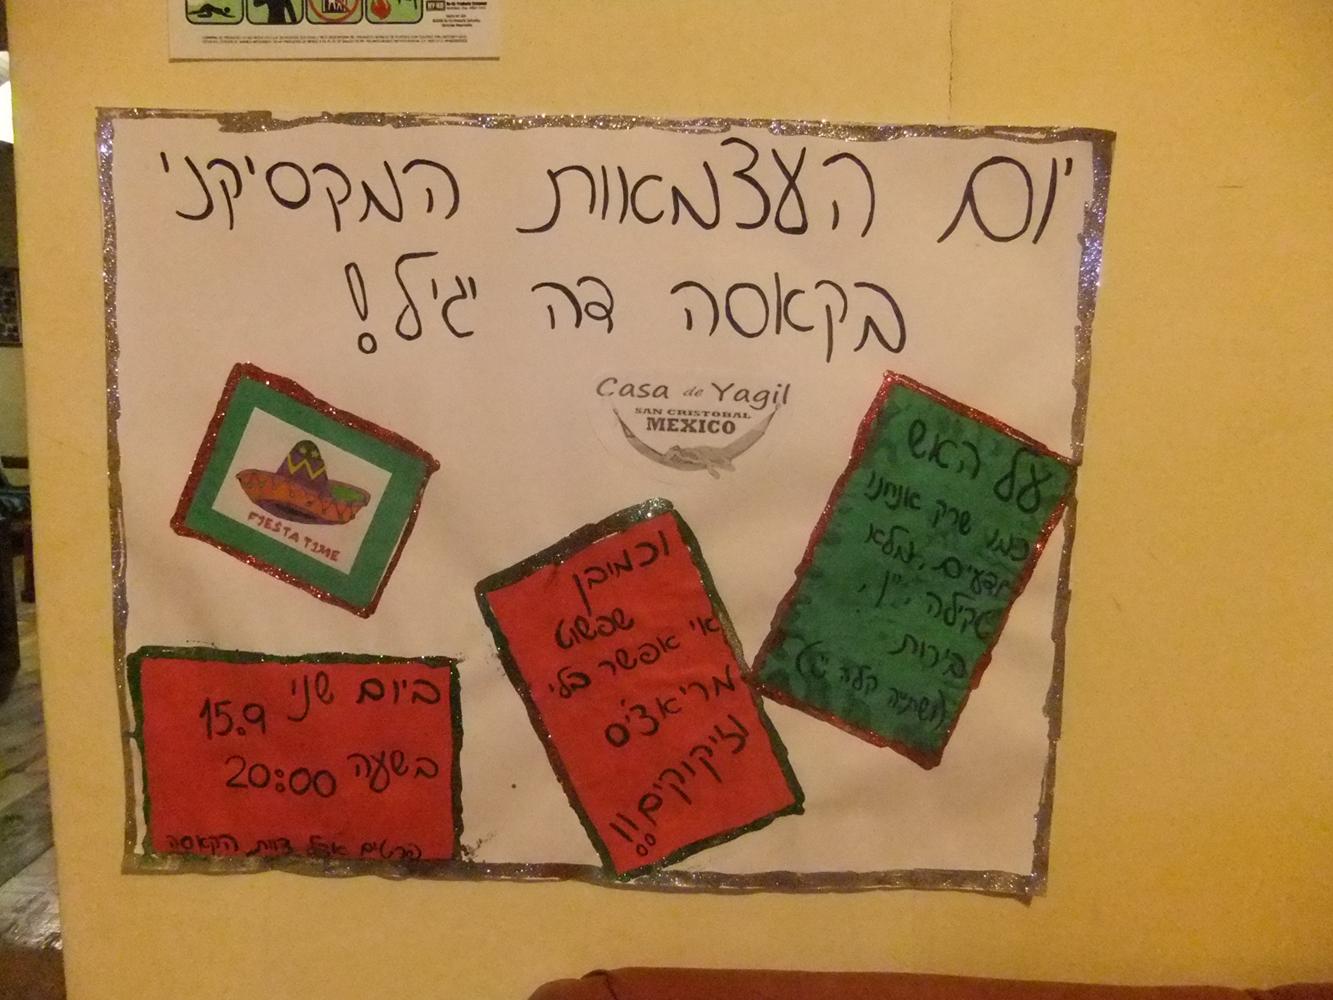 יום העצמאות המקסיקני
בקאסה דה יגיל!
Casa de Yagil
SAN CRISTOBAL
MEXICO
על האש
כמו שרק אנחנו
יודעים, מלא
טקילה, יין,
בירות
ושתייה קלה
וכמובן
שפשוט
אי אפשר בלי
מריאצ'יס
וזיקוקים!!
FIESTA TIME
ביום שני 15.9
בשעה 20:00
פרטים אצל צוות הקאסה